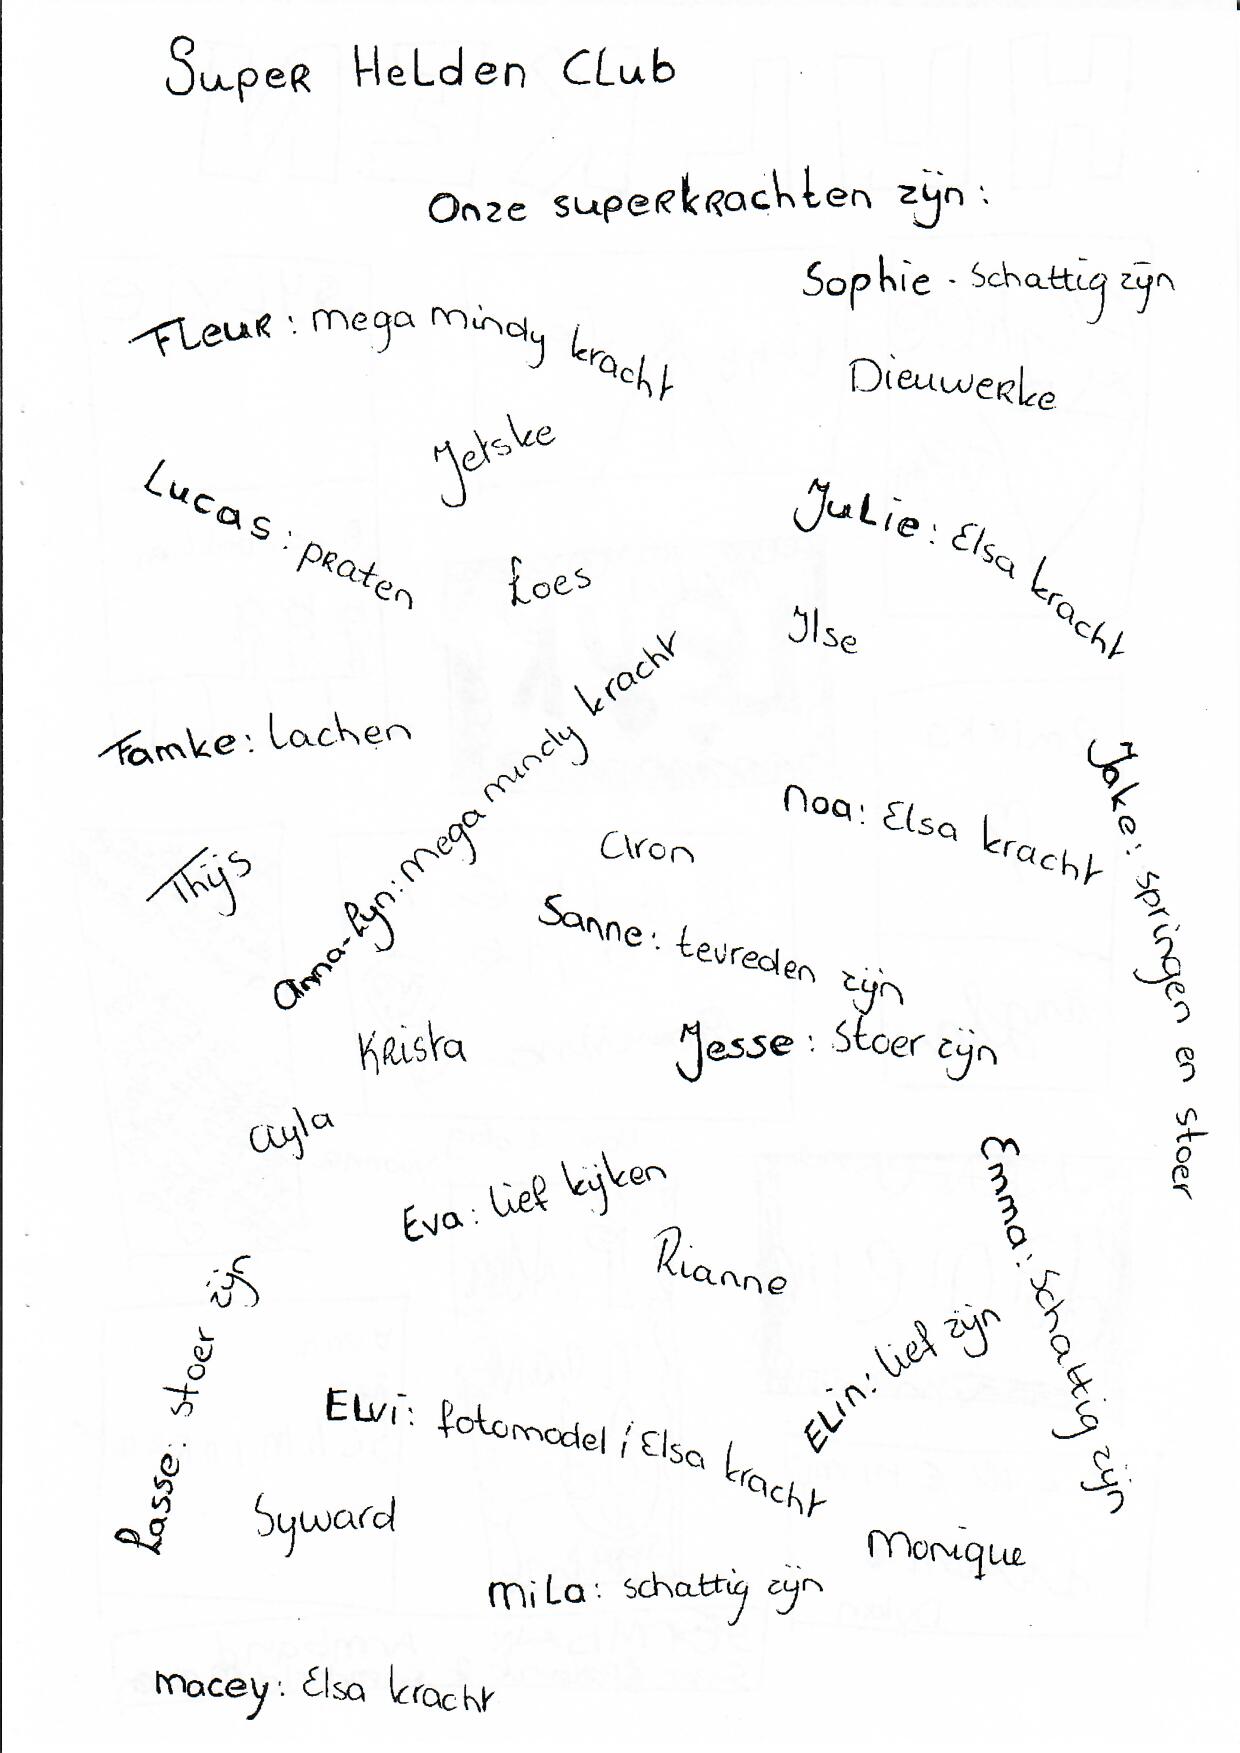 Super Helden Club
Onze superkrachten zijn:
Sophie - schattig zijn
Fleur: mega mindy kracht
Dieuwerke
Jetske
Lucas: praten
Julie: Elsa kracht
Loes
Ilse
Famke: lachen
Anna-Lyn: mega mindy kracht
Jake: springen en stoer
Noa: Elsa kracht
Aron
Thijs
Sanne: tevreden zijn
Krista
Jesse: stoer zijn
Ayla
Eva: lief kijken
Emma: schattig zijn
Rianne
Lasse: stoer zijn
Elin: lief zijn
Elvi: fotomodel / Elsa kracht
Syward
Monique
Mila: schattig zijn
Macey: Elsa kracht